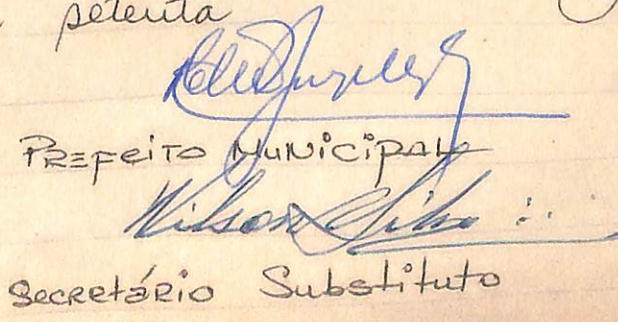 setenta
Prefeito Municipal
Wilson Silva
Secretário Substituto